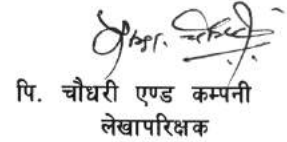 पि. चौधरी एण्ड कम्पनी
लेखापरिक्षक